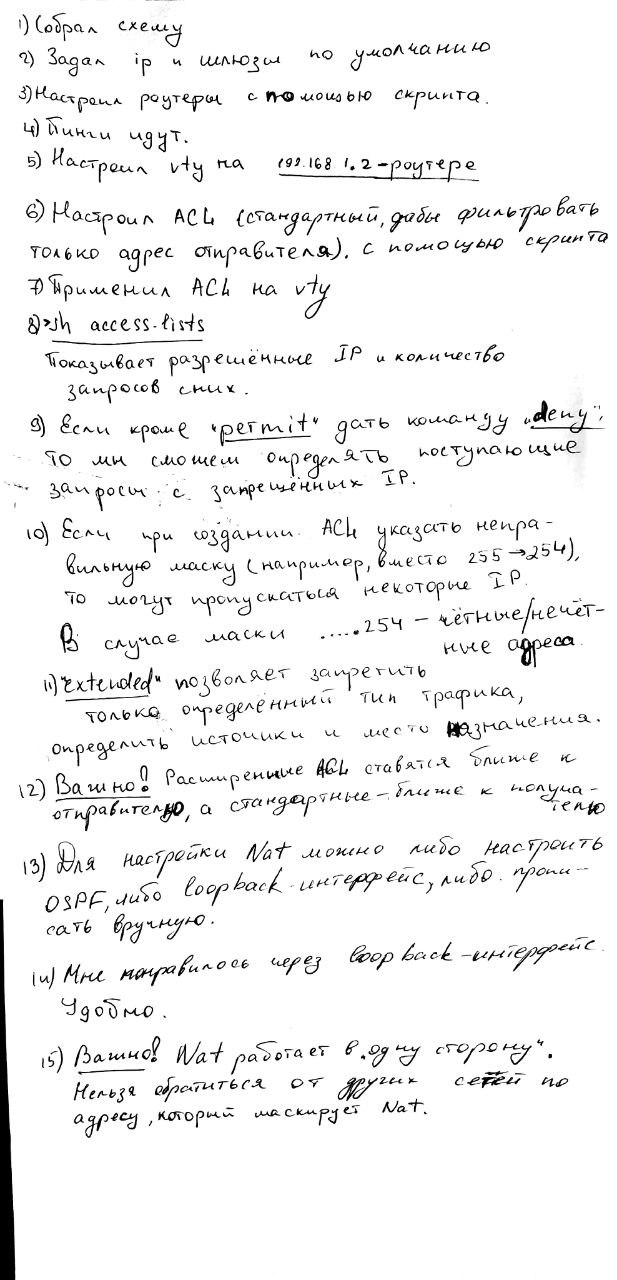 1) Собрал схему
2) Задал ip и шлюзы по умолчанию
3) Настроил роутеры с помощью скрипта.
4) Пинги идут.
5) Настроил vty на 192.168 1.2-роутере
6) Настроил ACL (стандартный, дабы фильтровать
только адрес отправителя). с помощью скрипта
7) Применил ACL на vty
8) >sh access-lists
Показывает разрешённые IP и количество
запросов с них.
9) Если кроме "permit" дать команду "deny",
то мы сможем определять поступающие
запросы с запрещённых IP.
10) Если при создании ACL указать непра-
вильную маску (например, вместо 255→254),
то могут пропускаться некоторые IP.
В случае маски .....254 - чётные/нечёт-
ные адреса.
11) "extended" позволяет запретить
только определённый тип трафика,
определить источники и место назначения.
12) Важно! Расширенные ACL ставятся ближе к
отправителю, а стандартные - ближе к получа-
телю
13) Для настройки Nat можно либо настроить
OSPF, либо loopback-интерфейс, либо пропи-
сать вручную.
14) Мне понравилось через loopback-интерфейс.
Удобно.
15) Важно! Nat работает в "одну сторону".
Нельзя обратиться от других сетей по
адресу, который маскирует Nat.